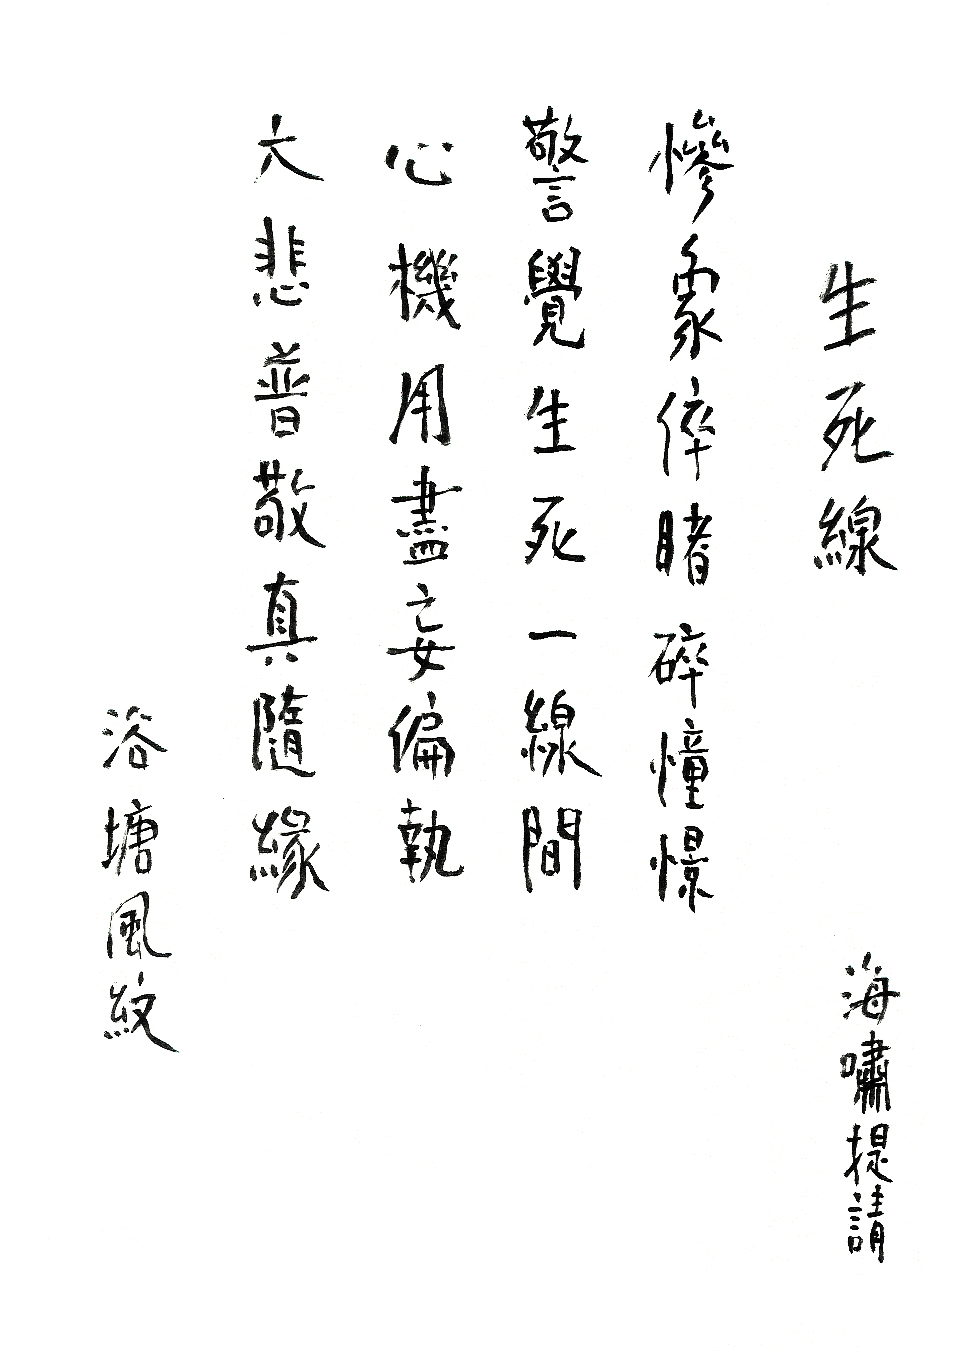 生死線
海嘯提請
慘象倅睹碎憧憬
警覺生死一線間
心機用盡妄偏執
大悲普敬真隨緣
浴塘風紋